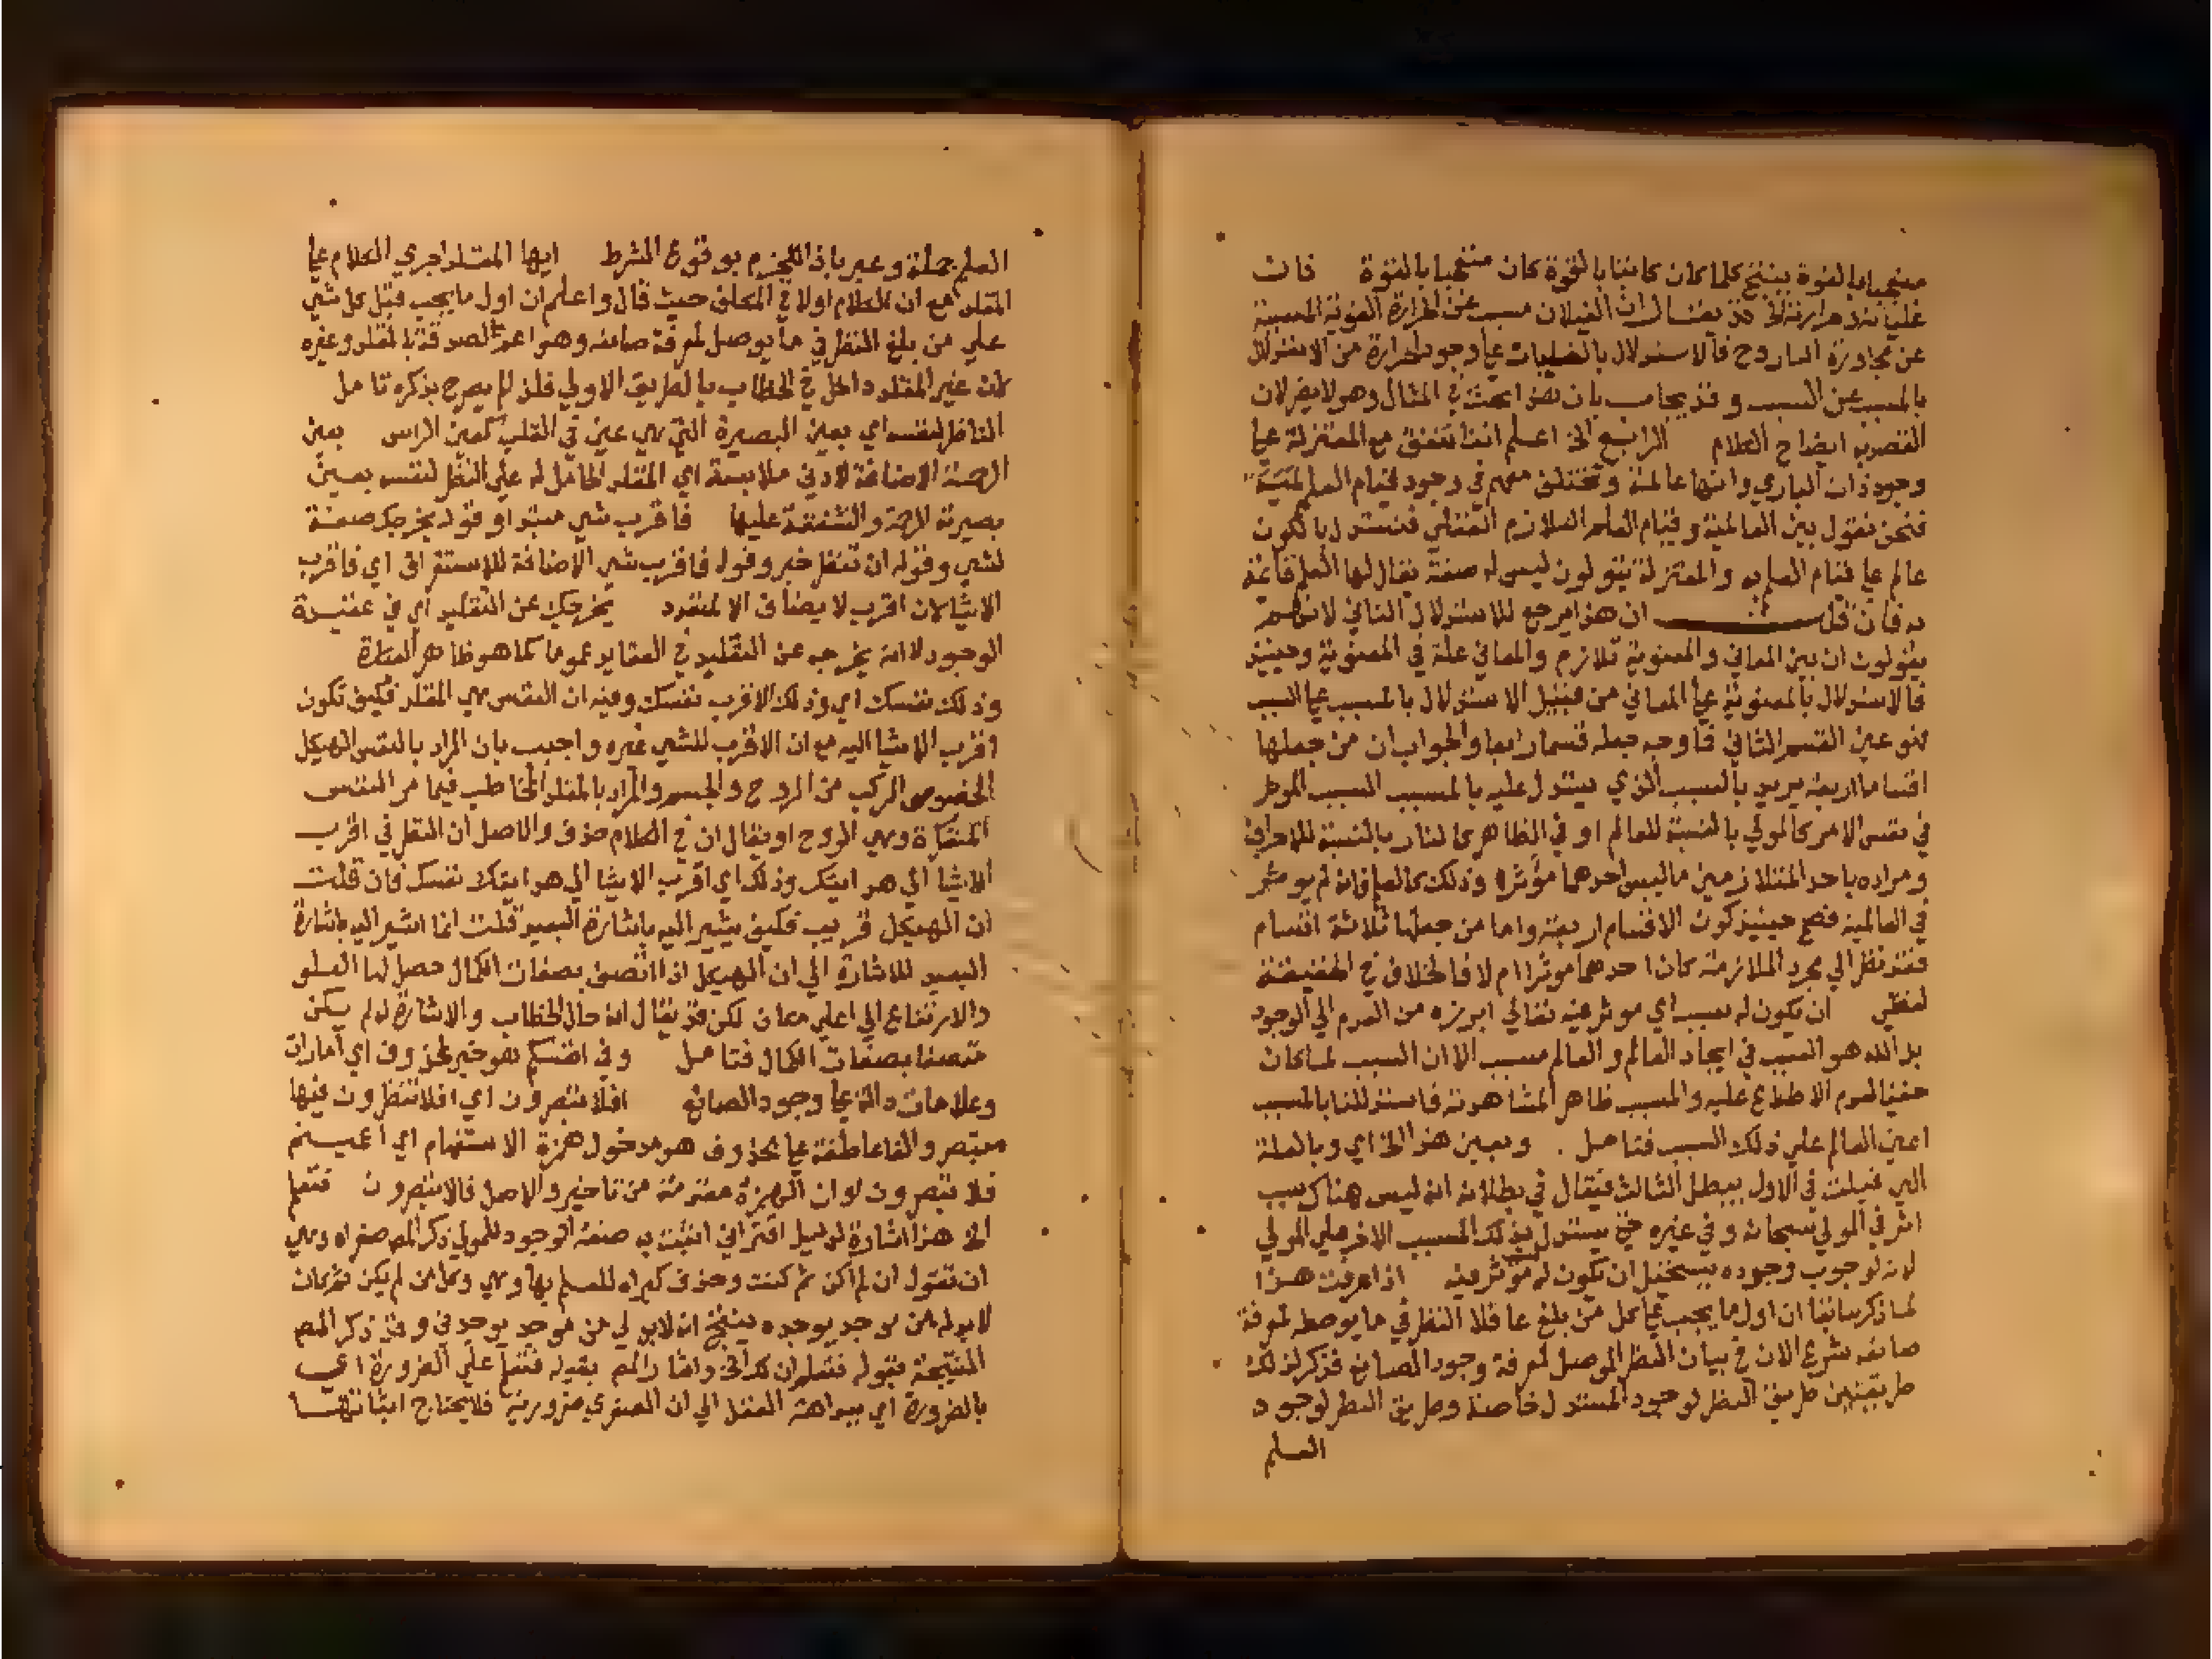 متعجبا بالقوة ينتج كلما كان كاتبا بالقوة كان متعجبا بالقوة فان
غليانه حرارته الخ قد يقال ان الغليان مسبب عن الحرارة القوية المسببة
عن مجاورة النار وح فالاستدلال بالغليان علي وجود الحرارة من الاستدلال
بالمسبب عن السبب وقد يجاب بان هذا بحث في المثال وهو لا يضر لان
القصد به ايضاح الكلام الرابع الخ اعلم اننا نتفق مع المعتزلة علي
وجود ذات الباري وانها عالمة ونختلف معهم في وجود قيام العلم
فنحن نقول بين العالمية وقيام العلم التلازم العقلي فنستدل بالكون
عالم علي قيام العلم به والمعتزلة يقولون ليس له صفة يقال لها العلم قائمة
به فان قلت ان هذا يرجع للاستدلال الثاني لانهم
يقولون ان بين المعاني والمعنوية تلازم والمعاني علة في المعنوية وحينئذ
فالاستدلال بالمعنوية علي المعاني من قبيل الاستدلال بالمسبب علي السبب
فهو عين القسم الثاني فما وجه جعله قسما رابعا والجواب ان من جعلها
اقساما اربعة يريد بالسبب الذي يستدل عليه بالمسبب السبب الموثر
في نفس الامر كالمولي بالنسبة للعالم او في الظاهر كالنار بالنسبة للاحراق
ومراده باحد المتلازمين ما ليس احدهما مؤثرا وذلك كالعلم فانه لم يوثر
في العالمية فصح حينئذ كون الاقسام اربعة واما من جعلها ثلاثة اقسام
فقد نظر الي مجرد الملازمة كان احدهما موثرا ام لا فالخلاف في الحقيقة
لفظي ان يكون له سبب اي موثر فيه تعالي ابرزه من العدم الي الوجود
بل الله هو السبب في ايجاد العالم والعالم مسبب الا ان السبب لما كان
خفيا لعدم الاطلاع عليه والمسبب ظاهر لمشاهدته فاستدللنا بالمسبب
اعني العالم علي ذلك السبب فتامل . وبعين هذا الخ اي وبالعلة
التي قيلت في الاول يبطل الثالث فيقال في بطلانه انه ليس هناك سبب
اثر في المولي سبحانه وفي غيره حتي يستدل بذلك المسبب الاخر علي المولي
لانه لوجوب وجوده يستحيل ان يكون له موثر فيه اذا عرفت هذا
لما ذكر سابقا ان اول ما يجب علي كل من بلغ عاقلا النظر في ما يوصله لمعرفة
صانعه شرع الان في بيان النظر الموصل لمعرفة وجود الصانع فذكر لذلك
طريقتين طريق النظر لوجود المستدل خاصة وطريق النظر لوجود
العلم
العلم جملة وعبر باذا للجزم بوقوع الشرط ايها المقلد اجري الكلام علي
المقلد مع ان الكلام اولا في المكلف حيث قال واعلم ان اول ما يجب قبل كل شي
علي من بلغ النظر في ما يوصل لمعرفة صانعه وهو اعم لصدقه بالمقلد وغيره
لان غير المقلد داخل في الخطاب بالطريق الاولي فلذا لم يصرح بذكره تامل
الناظر لنفسه اي بعين البصيرة التي هي عين في القلب كعين الراس بعين
الرحمة الاضافة لادني ملابسة اي المقلد الحامل له علي النظر لنفسه بعين
بصيرته الرحمة والشفقة عليها فاقرب شي مبتدا وقوله يخرجك صفة
لشي وقوله ان تنظر خبر وقوله فاقرب شي الاضافة للاستغراق اي فاقرب
الاشيا لان اقرب لا يضاف الا لمتعدد يخرجك عن التقليد اي في عقيدة
الوجود لا انه يخرجه عن التقليد في العقايد عموما كما هو ظاهر العبارة
وذلك نفسك اي وذلك الاقرب نفسك وفيه ان النفس هي المقلد فكيف تكون
اقرب الاشيا اليه مع ان الاقرب للشي غيره واجيب بان المراد بالنفس الهيكل
المخصوص المركب من الروح والجسم والمراد بالمقلد المخاطب فيما مر النفس
المتفكرة وهي الروح او يقال ان في الكلام حذف والاصل ان النظر في اقرب
الاشيا الي هدايتك وذلك اي اقرب الاشيا الي هدايتك نفسك فان قلت
ان الهيكل قريب فكيف يشير اليه باشارة البعيد قلت انما اشير اليه باشارة
البعيد للاشارة الي ان الهيكل اذا اتصف بصفات الكمال حصل له العلو
والارتفاع الي اعلي مكان لكن قد يقال انه حال الخطاب والاشارة له لم يكن
متصفا بصفات الكمال فتامل وفي انفسكم هو خبر لمحذوف اي امارات
وعلامات دالة علي وجود الصانع افلا تبصرون اي افلا تنظرون فيها
معتبر والفا عاطفة علي محذوف هو مدخول همزة الاستفهام اي اعميتم
فلا تبصرون او ان الهمزة مقدمة من تاخير والاصل فالا تبصرون فتعلم
الخ هذا اشارة لدليل اقتراني اثبت به صفة الوجود للمولي ذكر المص صغراه وهي
ان تقول ان لم اكن ثم كنت وحذف كبراه للعلم بها وهي وكل من لم يكن ثم كان
لابد له من موجد يوجده ينتج انه لابد لي من موجد يوجدني وقد ذكر المص
النتيجة بقوله فتعلم ان لك الخ وافاد الم بقوله فتعلم علي الضرورة اي
بالضرورة اي ببداهة العقل الي ان الصغري ضرورية فلا يحتاج اثباتها